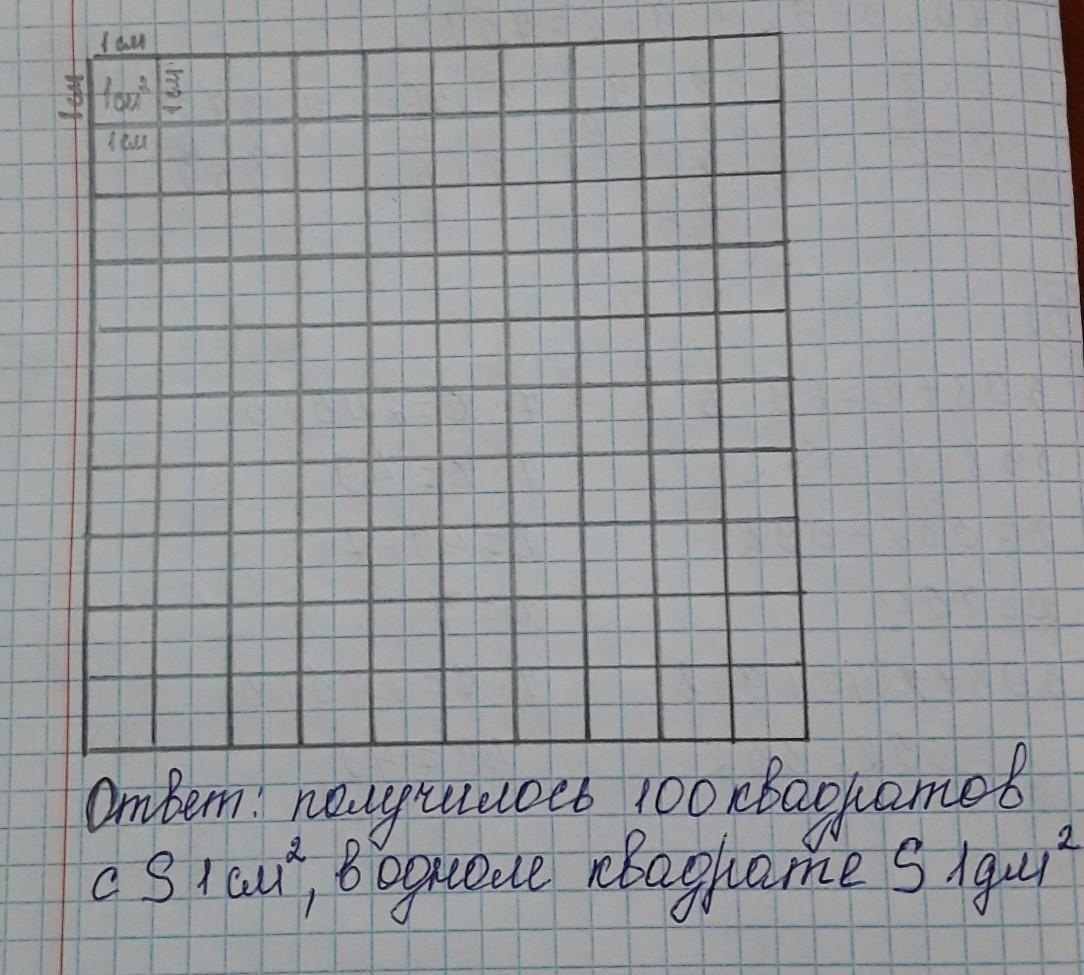 1 см
1 см
1 см²
1 см
1 см
Ответ: получилось 100 квадратов
с S 1 см², в одном квадрате S 1 дм²